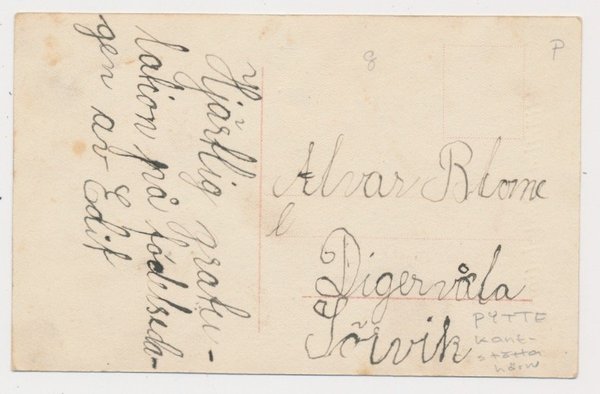 Hjärtlig gratu-
lation på födelseda-
gen av Edit
8
P
Alvar Blome
Digervåla
Sörvik
PYTTE
kant-
stötta
hörn